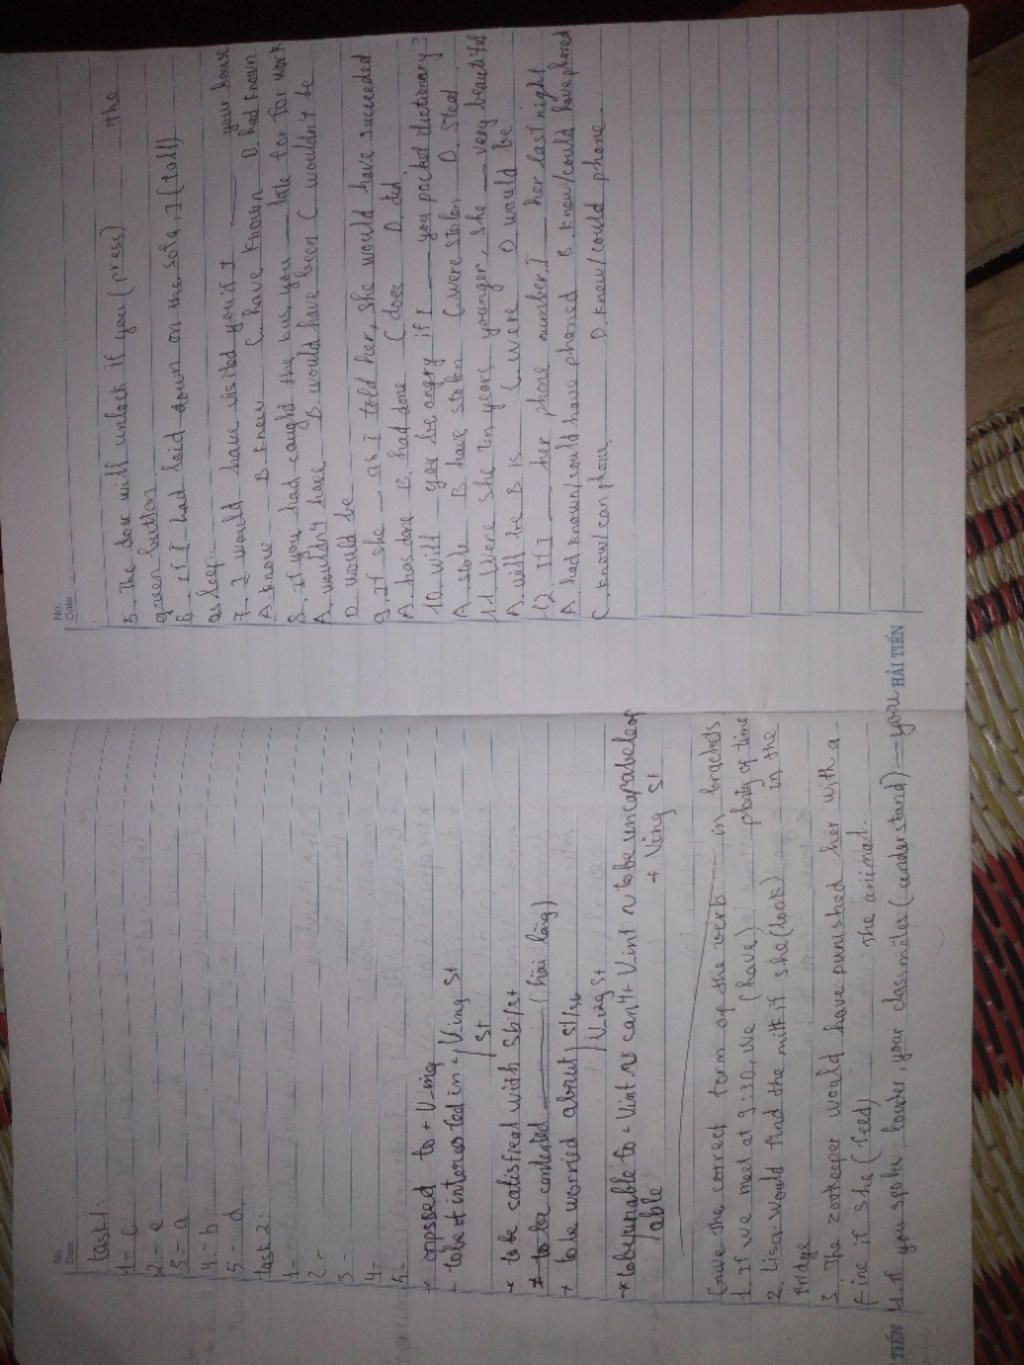 No.
Date
task1:
1- c
2- e
3- a
4- b
5- d
task 2:
1-
2-
3-
4-
5-
+ opposed to + Ving
- tobe interested in + / Ving St
/ St
* to be satisfied with Sb/st
to be contented (hài lòng)
+ to be worried about / st/sb
/ Ving St
+ Vinf ~ can't + Vinf ~ to be uncapable of
/ able
+ Ving St
Give the correct form of the verb in brackets
1. If we meet at 9:30, we (have) plenty of time
2. Lisa would find the milk if she (look) in the
fridge
3. The zookeeper would have punished her with a
fine if she (feed) the animal.
4. If you spoke louder, your classmates (understand) you
TIẾN
No.
Date
5. The door will unlock if you (press) the
green button
6. If I had laid down on the sofa, I (fall)
asleep
7. I would have visited you if I ___ your house
A. know B. knew C. have known D. had known
8. If you had caught the bus, you ___ late for work
A. wouldn't have B would have been C wouldn't be
D. would be
9. If she ___ as I told her, she would have succeeded
A. has done B. had done C does D. did
10. will you be angry if I ___ you pocket dictionary?
A. stole B. have stolen C were stolen D. steal
11. Were she ten years younger, she ___ very beautiful
A. will be B is C. were D would be
12. If I ___ her phone number, I ___ her last night
A. had known/could have phoned B. know/could have phoned
C. know/can phone D. knew/could phone
HẢI TIẾN